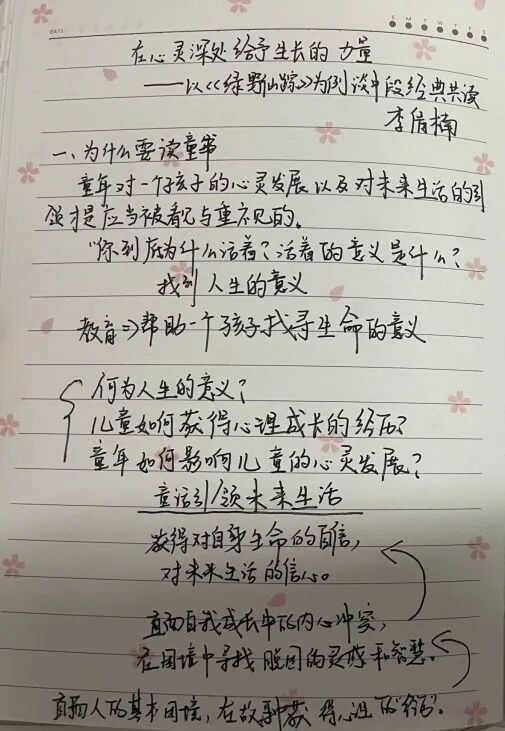 DATE
S M T W T F S
在心灵深处给予生长的力量
——以《绿野仙踪》为例谈中段经典共读
李倩楠
一、为什么要读童书
童年对一个孩子的心灵发展以及对未来生活的引
领才是应当被看见与重视的。
“你到底为什么活着？活着的意义是什么？
找到人生的意义
教育⇒帮助一个孩子找寻生命的意义
何为人生的意义？
儿童如何获得心理成长的经历？
童年如何影响儿童的心灵发展？
童话引领未来生活
获得对自身生命的自信，
对未来生活的信心。
直面自我成长中的内心冲突，
在困境中寻找脱困的灵感和智慧。
直面人的基本困境，在故事中获得心理的经历。